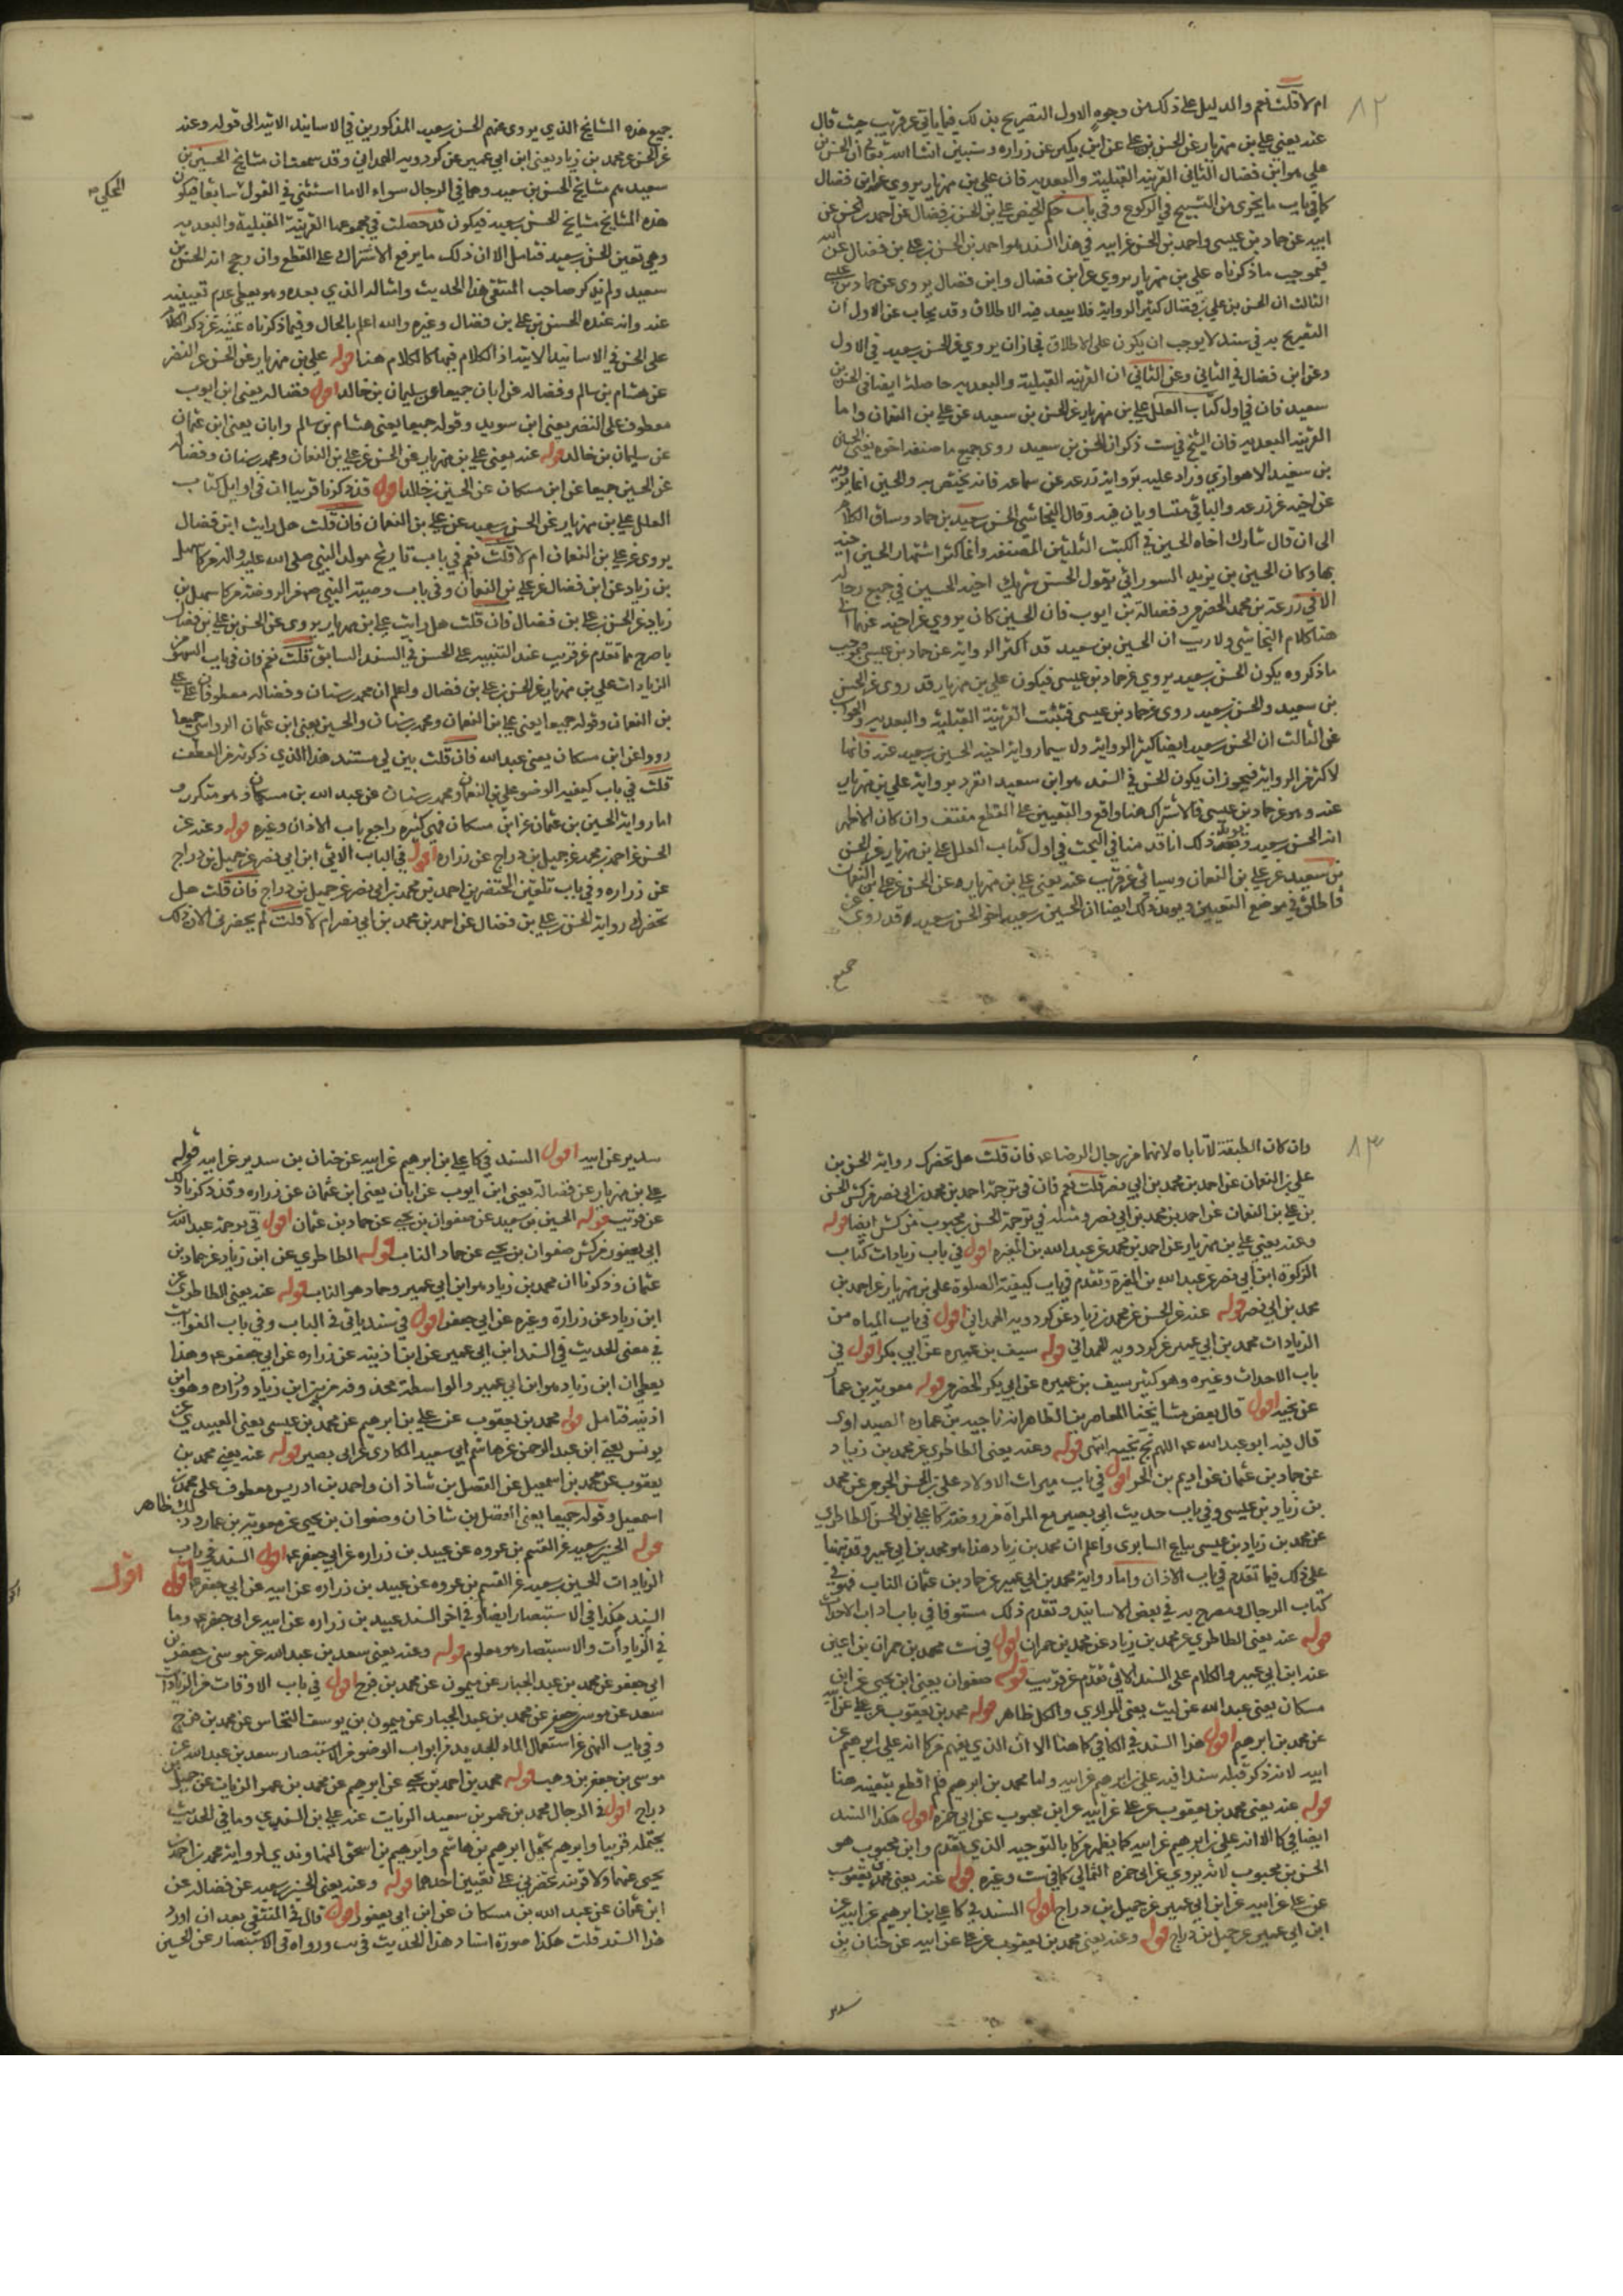 ١٢
ام لا قلت نعم والدليل على ذلك من وجوه الاول التصريح بذلك فيما ياتي عن قريب حيث قال
عنه يعني علي بن مهزيار عن الحسن بن علي عن ابن بكير عن زراره وستبين انشا الله تعالى ان الحسن بن
علي هو ابن فضال الثاني القرينة القبلية والبعديه فان علي بن مهزيار يروي عن ابن فضال
كما في باب ما يجزى من التسبيح في الركوع وفي باب حكم الحيض علي بن الحسن بن فضال عن احمد بن الحسن عن
ابيه عن حماد بن عيسى واحمد بن الحسن عن ابيه في هذا السند هو احمد بن الحسن بن علي بن فضال عن
فبموجب ما ذكرناه علي بن مهزيار يروي عن ابن فضال وابن فضال يروي عن حماد بن عيسى
الثالث ان الحسن بن علي بن فضال كثير الرواية فلا يبعد فيه الاطلاق وقد يجاب عن الاول ان
التصريح به في سند لا يوجب ان يكون على الاطلاق فجاز ان يروي عن الحسن بن سعيد في الاول
وعن ابن فضال في الثاني وعن الثاني ان القرينه القبلية والبعديه حاصلة ايضا في الحسن بن
سعيد فان في اول كتاب العلل علي بن مهزيار عن الحسن بن سعيد عن علي بن النعمان واما
القرينه البعديه فان الشيخ في ست ذكر ان الحسن بن سعيد روى جميع ما صنفه اخوه يعني الحسين
بن سعيد الاهوازي وزاد عليه برواية زرعه عن سماعه فانه يختص به والحسين انما يرويه
عن اخيه عن زرعه والباقي متساويان فيه وقال النجاشي الحسن بن سعيد بن حماد وساق الكلام
الى ان قال شارك اخاه الحسين في الكتب الثلثين المصنفه وانما كثر اشتهار الحسين اخيه
بها وكان الحسين بن يزيد السوراني يقول الحسن شريك اخيه الحسين في جميع رجاله
الا في زرعة بن محمد الحضرمي وفضالة بن ايوب فان الحسين كان يروي عن اخيه عنهما
هذا كلام النجاشي ولا ريب ان الحسين بن سعيد قد اكثر الرواية عن حماد بن عيسى فبموجب
ما ذكروه يكون الحسن بن سعيد يروي عن حماد بن عيسى فيكون علي بن مهزيار قد روى عن الحسن
بن سعيد والحسن بن سعيد روى عن حماد بن عيسى فثبتت القرينة القبلية والبعديه والجواب
عن الثالث ان الحسن بن سعيد ايضا كثير الرواية ولا سيما رواية اخيه الحسين بن سعيد عنه فانها
لاكثر من الرواية فيجوز ان يكون الحسن في السند هو ابن سعيد انفرد برواية علي بن مهزيار
عنه وهو عن حماد بن عيسى فالاشتراك هنا واقع والتعيين على القطع منتف وان كان الاظهر
انه الحسن بن سعيد ذلك انا قدمنا في البحث في اول كتاب العلل علي بن مهزيار عن الحسن
بن سعيد عن علي بن النعمان وسياتي عن قريب عنه يعني علي بن مهزيار عن الحسن عن علي بن النعمان
فاطلق في موضع التعيين ويويد ذلك ايضا ان الحسين بن سعيد اخي الحسن بن سعيد قد روى
جميع
جميع هذه المشايخ الذي يروى عنهم الحسن بن سعيد المذكورين في الاسانيد الاتيه الى قوله وعنه
عن الحسن عن محمد بن زياد يعني ابن ابي عمير عن كردويه الهمداني وقد سمعت ان مشايخ الحسين بن
سعيد هم مشايخ الحسن بن سعيد وهما في الرجال سواء الا ما استثني في القول سابقا فيكون
هذه المشايخ مشايخ للحسن بن سعيد فيكون قد حصلت في مجموعها القرينة القبلية والبعديه
وهي تعين الحسن بن سعيد فتامل الا ان ذلك ما يرفع الاشتراك على القطع وان رجح انه الحسن بن
سعيد ولم يذكر صاحب المنتقى هذا الحديث وامثاله الذي بعده وهو يعطي عدم تعيينه
عنده وانه عنده الحسن بن علي بن فضال وغيره والله اعلم بالحال وفيما ذكرناه غنية عن ذكر الكلام
على الحسن في الاسانيد الاتيه اذ الكلام فيها كالكلام هنا قوله علي بن مهزيار عن الحسن عن النضر
عن هشام بن سالم وفضاله عن ابان جميعا عن سليمان بن خالد اقول فضاله يعني ابن ايوب
معطوف على النضر يعني ابن سويد وقوله جميعا يعني هشام بن سالم وابان يعني ابن عثمان
عن سليمان بن خالد قوله عنه يعني علي بن مهزيار عن الحسن عن علي بن النعمان ومحمد بن سنان وفضاله
عن الحسين جميعا عن ابن مسكان عن الحسن بن خالد اقول قد ذكرنا قريبا ان في اوايل كتاب
العلل علي بن مهزيار عن الحسن بن سعيد عن علي بن النعمان فان قلت هل رايت ابن فضال
يروى عن علي بن النعمان ام لا قلت نعم في باب تاريخ مولد النبي صلى الله عليه واله عن كا سهل
بن زياد عن ابن فضال عن علي بن النعمان وفي باب وصية النبي ص من الروضة من كا سهل بن
زياد عن الحسن بن علي بن فضال فان قلت هل رايت علي بن مهزيار يروى عن الحسن بن علي بن فضال
باصرح مما تقدم عن قريب عند التنبيه على الحسن في السند السابق قلت نعم فان في باب السهو من
الزيادات علي بن مهزيار عن الحسن بن علي بن فضال واعلم ان محمد بن سنان وفضاله معطوفان على علي
بن النعمان وقوله جميعا يعني علي بن النعمان ومحمد بن سنان والحسين يعني ابن عثمان الرواسي جميعا
رووا عن ابن مسكان يعني عبد الله فان قلت بين لي مستند هذا الذي ذكرته من العطف
قلت في باب كيفيه الوضو علي بن النعمان ومحمد بن سنان عن عبد الله بن مسكان وهو متكرر
اما رواية الحسين بن عثمان عن ابن مسكان فهي كثيره راجع باب الاذان وغيره قوله وعنه عن
الحسن عن احمد بن محمد عن جميل بن دراج عن زراره اقول في الباب الاتي ابن ابي نصر عن جميل بن دراج
عن زراره وفي باب تلقين المحتضرين احمد بن محمد بن ابي نصر عن جميل بن دراج فان قلت هل
تحضرك رواية الحسن بن علي بن فضال عن احمد بن محمد بن ابي نصر ام لا قلت لم يحضرني الان ذلك
١٣
وان كان الطبقة لا تاباه لانهما من رجال الرضا ع فان قلت هل تحضرك رواية الحسن بن
علي بن النعمان عن احمد بن محمد بن ابي نصر قلت نعم فان في ترجمة احمد بن محمد بن ابي نصر من كش الحسن
بن علي بن النعمان عن احمد بن محمد بن ابي نصر ومثله في ترجمة الحسن بن محبوب من كش ايضا قوله
وعنه يعني علي بن مهزيار عن احمد بن محمد عن عبد الله بن المغيره اقول في باب زيادات كتاب
الزكوة ابن ابي نصر عن عبد الله بن المغيرة وتقدم في باب كيفية الصلوة علي بن مهزيار عن احمد بن
محمد بن ابي نصر قوله عنه عن الحسن عن محمد بن زياد عن كردويه الهمداني اقول في باب المياه من
الزيادات محمد بن ابي عمير عن كردويه الهمداني قوله سيف بن عميره عن ابي بكر اقول في
باب الاحداث وغيره وهو كثير سيف بن عميره عن ابي بكر الحضرمي قوله معويه بن عمار
عن نجيه اقول قال بعض مشايخنا المعاصرين الظاهر انه ناجيه بن عماره الصيداوي
قال فيه ابو عبد الله ع اللهم نج نجيه انتهى قوله وعنه يعني الطاطري عن محمد بن زياد
عن حماد بن عثمان عن اديم بن الحر اقول في باب ميراث الاولاد علي بن الحسن الجرمي عن محمد
بن زياد بن عيسى وفي باب حديث ابي بصير مع المراة من روضة كا علي بن الحسن الطاطري
عن محمد بن زياد بن عيسى بياع السابري واعلم ان محمد بن زياد هذا هو محمد بن ابي عمير وقد نبهنا
على ذلك فيما تقدم في باب الاذان واما رواية محمد بن ابي عمير عن حماد بن عثمان الناب فهو في
كتاب الرجال ومصرح به في بعض الاسانيد وتقدم ذلك مستوفا في باب اداب الاحداث
قوله عنه يعني الطاطري عن محمد بن زياد عن محمد بن حمران اقول في ست محمد بن حمران بن اعين
عنه ابن ابي عمير والكلام على السند الاتي تقدم عن قريب قوله صفوان يعني ابن يحيى عن ابن
مسكان يعني عبد الله عن ليث يعني المرادي والكل ظاهر قوله محمد بن يعقوب عن علي عن ابيه
عن محمد بن ابرهيم اقول هذا السند في الكافي كما هنا الا ان الذي يفهم من كا انه علي بن ابرهيم عن
ابيه لانه ذكر قبله سندا فيه علي بن ابرهيم عن ابيه واما محمد بن ابرهيم فلم اقطع بتعيينه هنا
قوله عنه يعني محمد بن يعقوب عن علي عن ابيه عن ابن محبوب عن ابي حمزه اقول هكذا السند
ايضا في كا الا انه علي بن ابرهيم عن ابيه كما يظهر من كا بالتوجيه الذي تقدم وابن محبوب هو
الحسن بن محبوب لانه يروي عن ابي حمزه الثمالي كما في ست وغيره قوله عنه يعني محمد بن يعقوب
عن علي عن ابيه عن ابن ابي عمير عن جميل بن دراج اقول السند في كا علي بن ابرهيم عن ابيه عن
ابن ابي عمير عن جميل بن دراج قوله وعنه يعني محمد بن يعقوب عن علي عن ابيه عن حنان بن
سدير
سدير عن ابيه اقول السند في كا علي بن ابرهيم عن ابيه عن حنان بن سدير عن ابيه قوله
علي بن مهزيار عن فضالة يعني ابن ايوب عن ابان يعني ابن عثمان عن زراره وقد ذكرنا ذلك
عن قريب قوله الحسين بن سعيد عن صفوان بن يحيى عن حماد بن عثمان اقول في ترجمة عبد الله بن
ابي يعفور من كش صفوان بن يحيى عن حماد الناب قوله الطاطري عن ابن زياد عن حماد بن
عثمان وذكرنا ان محمد بن زياد هو ابن ابي عمير وحماد هو الناب قوله عنه يعني الطاطري عن
ابن زياد عن زرارة وغيره عن ابي جعفر اقول في سند ياتي في الباب وفي باب المواقيت
في معنى الحديث في السند ابن ابي عمير عن ابن اذينه عن زراره عن ابي جعفر ع وهذا
يعطي ان ابن زياد هو ابن ابي عمير والواسطة محذوفه من بين ابن زياد وزراره وهو ابن
اذينه فتامل قوله محمد بن يعقوب عن علي بن ابرهيم عن محمد بن عيسى يعني العبيدي عن
يونس يعني ابن عبد الرحمن عن هاشم ابي سعيد المكاري عن ابي بصير قوله عنه يعني محمد بن
يعقوب عن محمد بن اسمعيل عن الفضل بن شاذان واحمد بن ادريس معطوف على محمد بن
اسمعيل وقوله جميعا يعني الفضل بن شاذان وصفوان بن يحيى عن معويه بن عمار وذلك ظاهر
قوله الحسين بن سعيد عن القسم بن عروه عن عبيد بن زراره عن ابي جعفر ع اقول السند في باب
الزيادات الحسين بن سعيد عن القسم بن عروه عن عبيد بن زراره عن ابيه عن ابي جعفر ع اقول
اقول
السند هكذا في الاستبصار ايضا وفي اخر السند عبيد بن زراره عن ابيه عن ابي جعفر ع وما
في الزيادات والاستبصار هو معلوم قوله وعنه يعني سعد بن عبد الله عن موسى بن جعفر بن
ابي جعفر عن محمد بن عبد الجبار عن ميمون عن محمد بن فرج اقول في باب الاوقات من الزيادات
سعد عن موسى بن جعفر عن محمد بن عبد الجبار عن ميمون بن يوسف النخاس عن محمد بن فرج
وفي باب النهى عن استعمال الماء الجديد من ابواب الوضو من الاستبصار سعد بن عبد الله عن
موسى بن جعفر بن وهب قوله محمد بن احمد بن يحيى عن ابرهيم عن محمد بن عمرو الزيات عن جميل بن
دراج اقول في الرجال محمد بن عمرو بن سعيد الزيات عنه علي بن السندي وما في الحديث
يحتمله قريبا وابرهيم يحتمل ابرهيم بن هاشم وابرهيم بن اسحق النهاوندي لرواية محمد بن احمد بن
يحيى عنهما ولا قرينه تحضرني على تعيين احدهما قوله وعنه يعني الحسين بن سعيد عن فضاله عن
ابن عثمان عن عبد الله بن مسكان عن ابن ابي يعفور اقول قال في المنتقى بعد ان اورد
هذا السند قلت هكذا صورة اسناد هذا الحديث في يب ورواه في الاستبصار عن الحسين